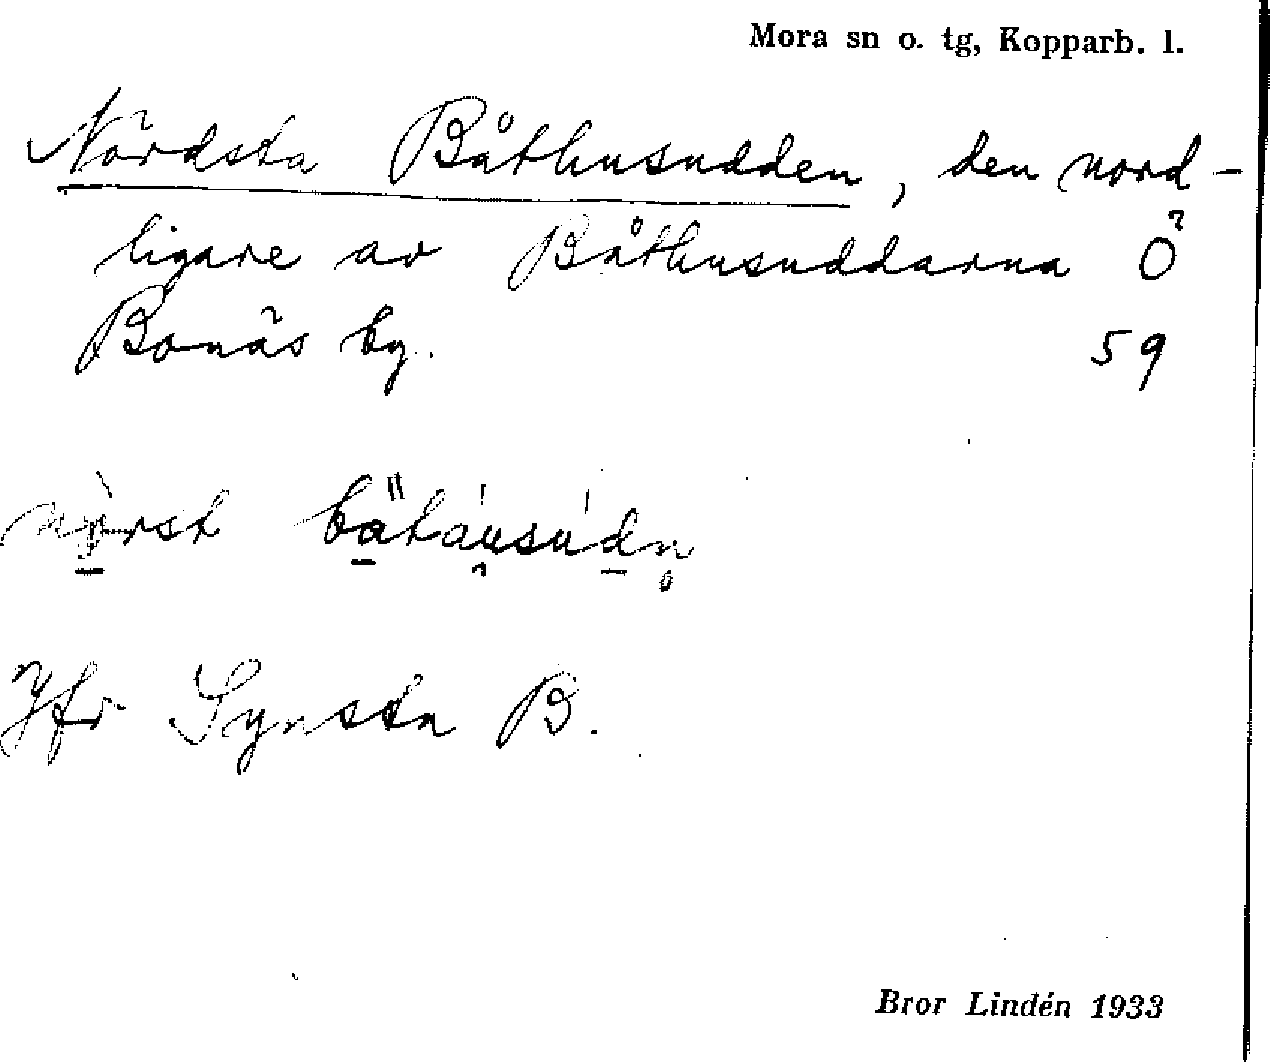 Mora sn o. tg, Kopparb. l.
Nördsta Båthusudden, den nord-
ligare av Båthusuddarna Ö
Bonäs by. 59
Jfr Synsta B.
Bror Lindén 1933